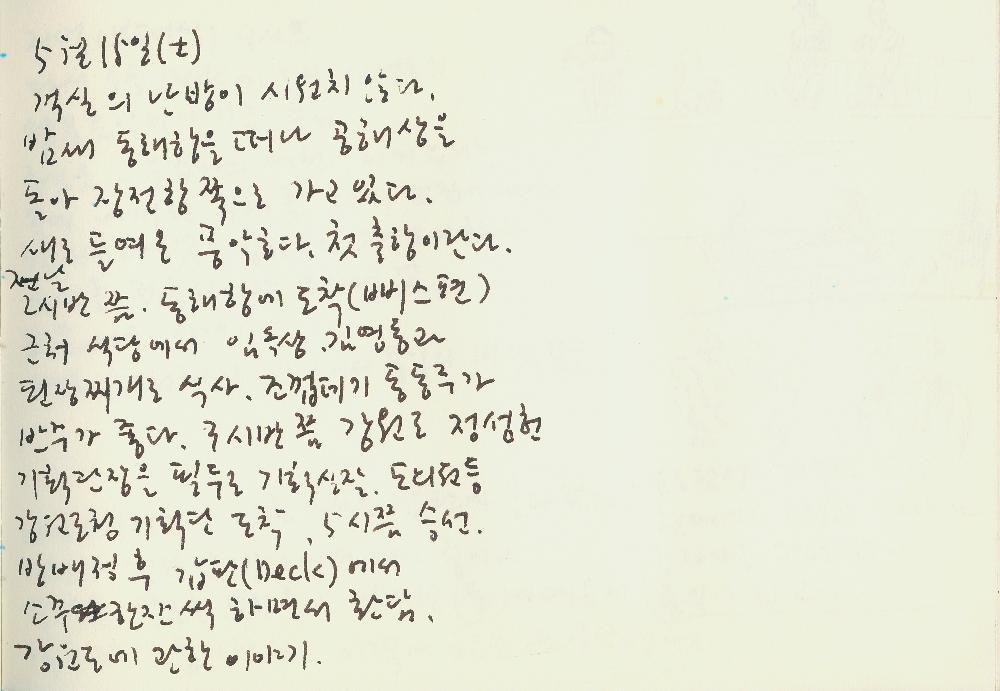 5월 15일(土)
객실의 난방이 시원치 않다.
밤새 동해항을 떠나 공해상을
돌아 장전항쪽으로 가고 있다.
새로 들여온 풍악호다. 첫 출항이란다.
전날
2시반 쯤. 동해항에 도착(뻐스편)
근처 식당에서 임옥상, 김영동과
된장찌개로 식사. 조껍데기 동동주가
반주가 좋다. 3시반 쯤 강원도 정성헌
기획관장을 필두로 기획실장, 도의원등
강원도청 기획단 도착, 5시쯤 승선.
방배정 후 갑판(Deck)에서
소주 한잔씩 하면서 환담.
강원도에 관한 이야기.